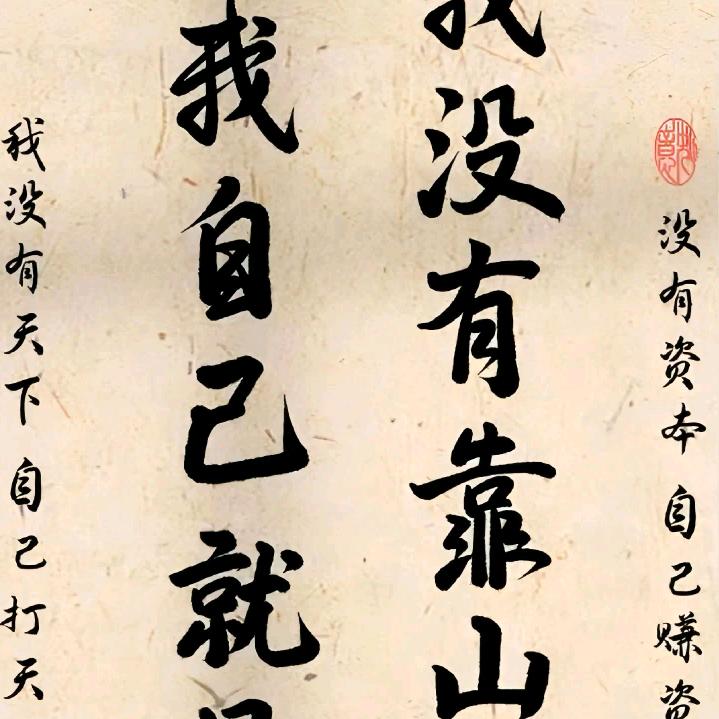 没有资本 自己赚资
我没有靠山
我自己就是
我没有天下 自己打天